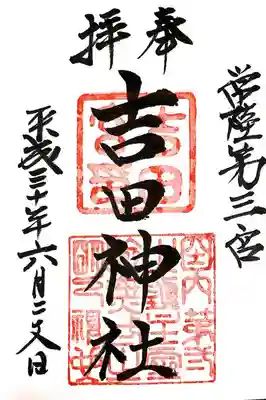 奉拝
常陸第三宮
吉田神社
平成三十年六月二十八日